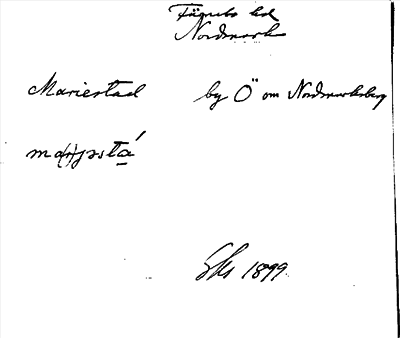 Färnebo hd
Nordmark
Mariestad by Ö om Nordmarksberg
1899